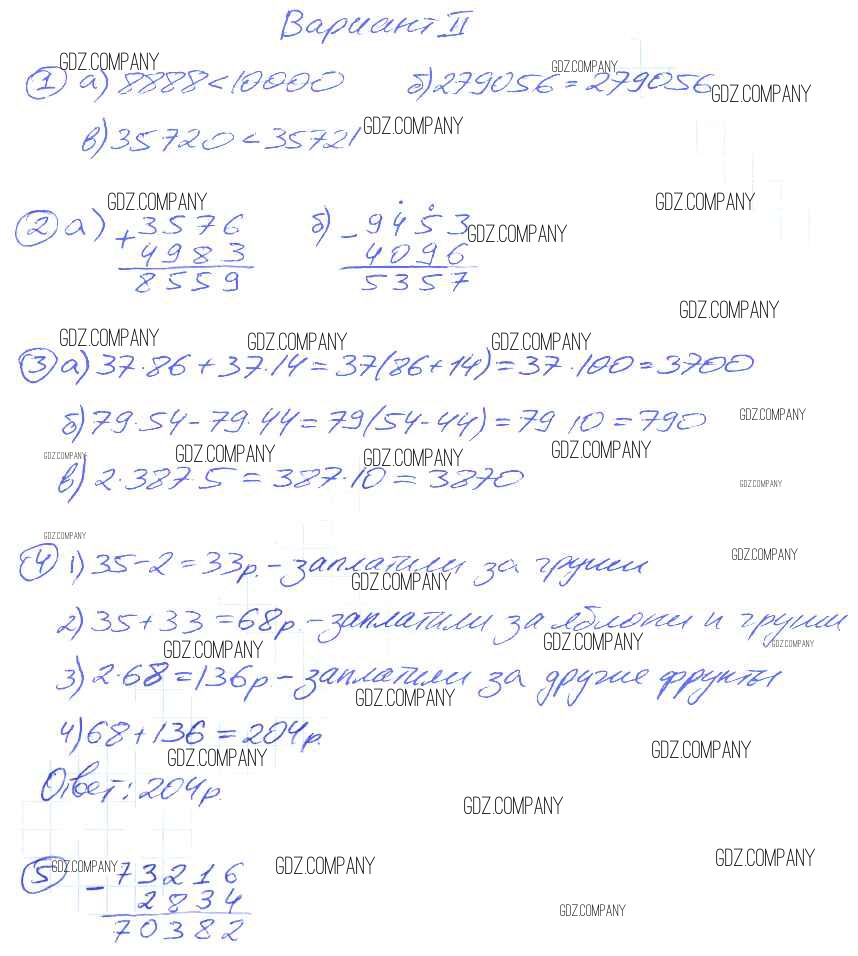 Вариант II
GDZ.COMPANY GDZ.COMPANY
① а) 8888 < 10000 б) 279056 = 279056 GDZ.COMPANY
в) 35720 < 35721 GDZ.COMPANY
GDZ.COMPANY GDZ.COMPANY
② а) + 3576 б) - 9453 GDZ.COMPANY
4983 4096
8559 5357
GDZ.COMPANY
GDZ.COMPANY GDZ.COMPANY GDZ.COMPANY
③ а) 37·86 + 37·14 = 37(86+14) = 37·100 = 3700
б) 79·54 - 79·44 = 79(54-44) = 79 10 = 790 GDZ.COMPANY
GDZ.COMPANY GDZ.COMPANY GDZ.COMPANY GDZ.COMPANY
в) 2·387·5 = 387·10 = 3870 GDZ.COMPANY
GDZ.COMPANY
④ 1) 35-2 = 33р. - заплатили за груши GDZ.COMPANY
GDZ.COMPANY
2) 35+33 = 68р. - заплатили за яблоки и груши
GDZ.COMPANY GDZ.COMPANY GDZ.COMPANY
3) 2·68 = 136р. - заплатили за другие фрукты
GDZ.COMPANY
4) 68+136 = 204р.
GDZ.COMPANY GDZ.COMPANY
Ответ: 204р.
GDZ.COMPANY
⑤ GDZ.COMPANY - 73216 GDZ.COMPANY GDZ.COMPANY
2834
GDZ.COMPANY
70382